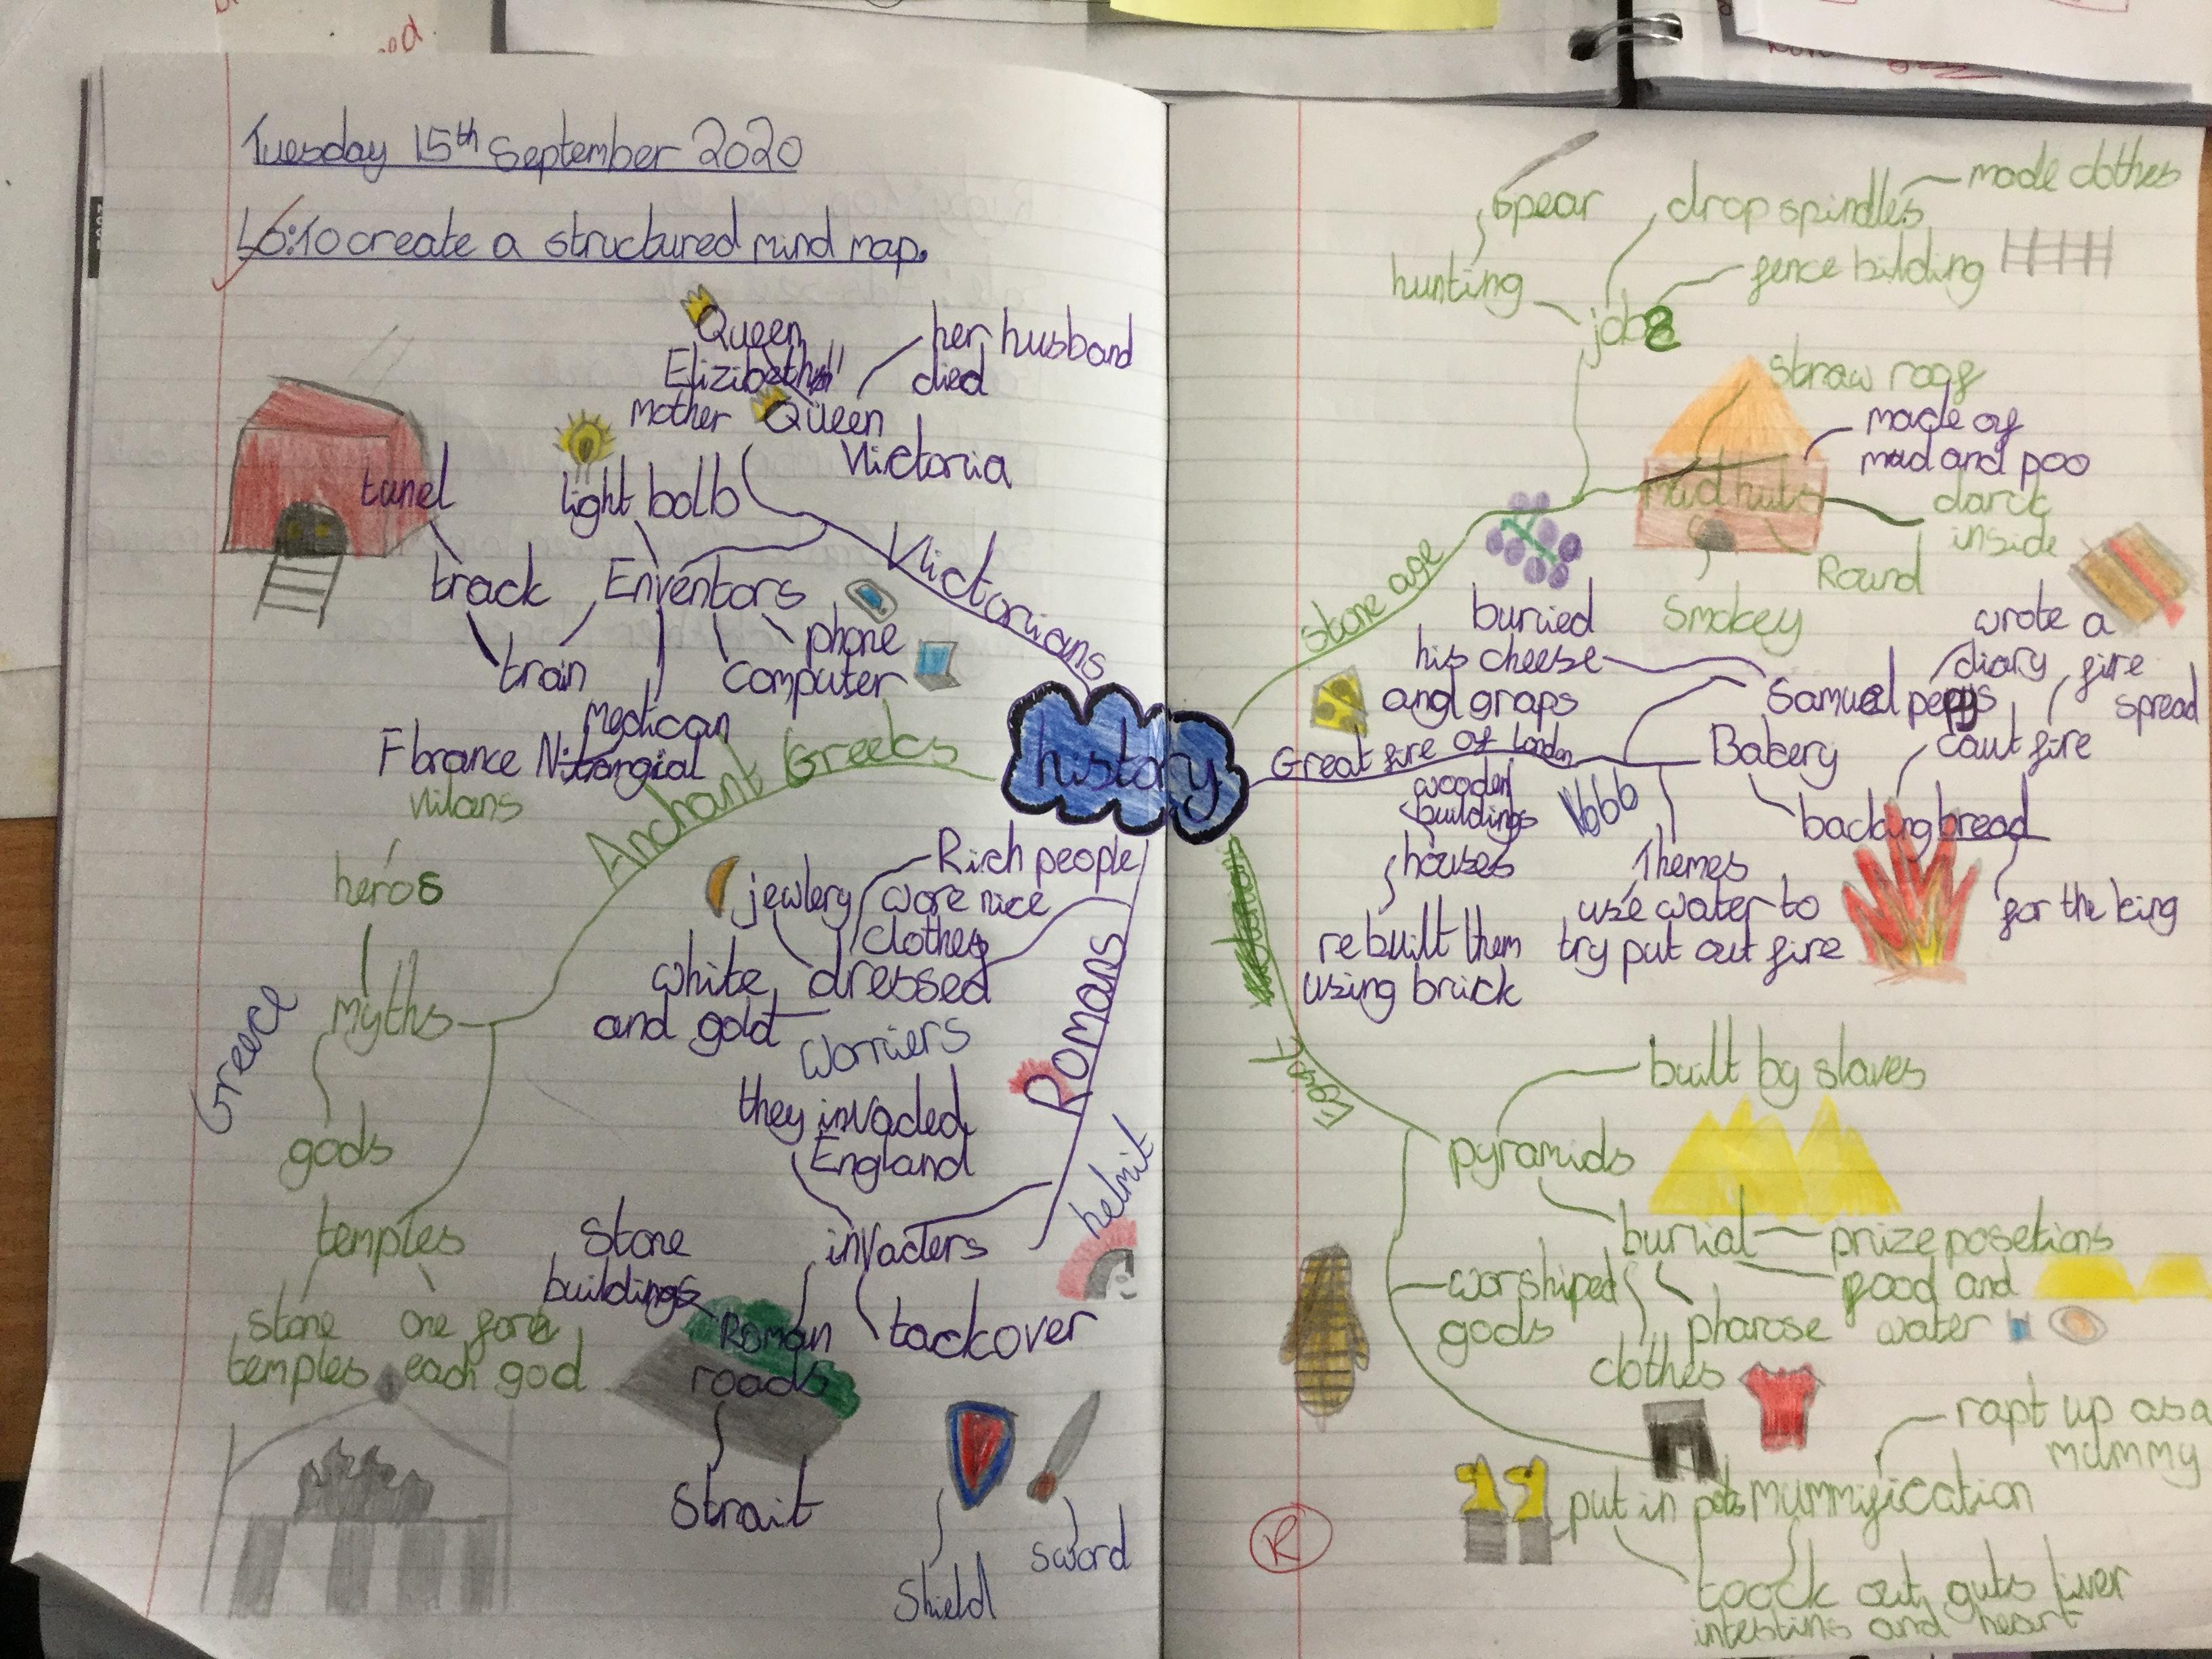 Tuesday 15th September 2020
Lo: To create a structured mind map.
Queen
Elizibeth
mother
her husband
died
Queen
Victoria
light bolb
tunel
track
Enventors
train
phone
computer
medican
Florance
Victorians
history
Anchant Greeks
vilans
heros
myths
Greece
gods
temples
stone
temples
one for
each god
Romans
Rich people
wore nice
clothes
jewlery
dressed
white
and gold
Worriers
they invaded
England
invaders
helmit
stone
buildings
Roman
roads
tackover
Strait
Shield
sword
Stone age
spear
hunting
drop spindles
made clothes
fence bilding
jobs
straw roof
made of
mud and poo
mud huts
darck
inside
Round
Smokey
Great fire of London
buried
his cheese
and graps
Samuel pepys
wrote a
diary
fire
spread
Bakery
caut fire
backing bread
for the king
wooden
buildings
houses
re built them
using brick
1666
Themes
use water to
try put out fire
Egipt
built by slaves
pyramids
burial
prize posetions
food and
water
worshiped
gods
pharose
clothes
rapt up as a
mummy
put in pots
mummification
toock out guts liver
intestins and heart
R